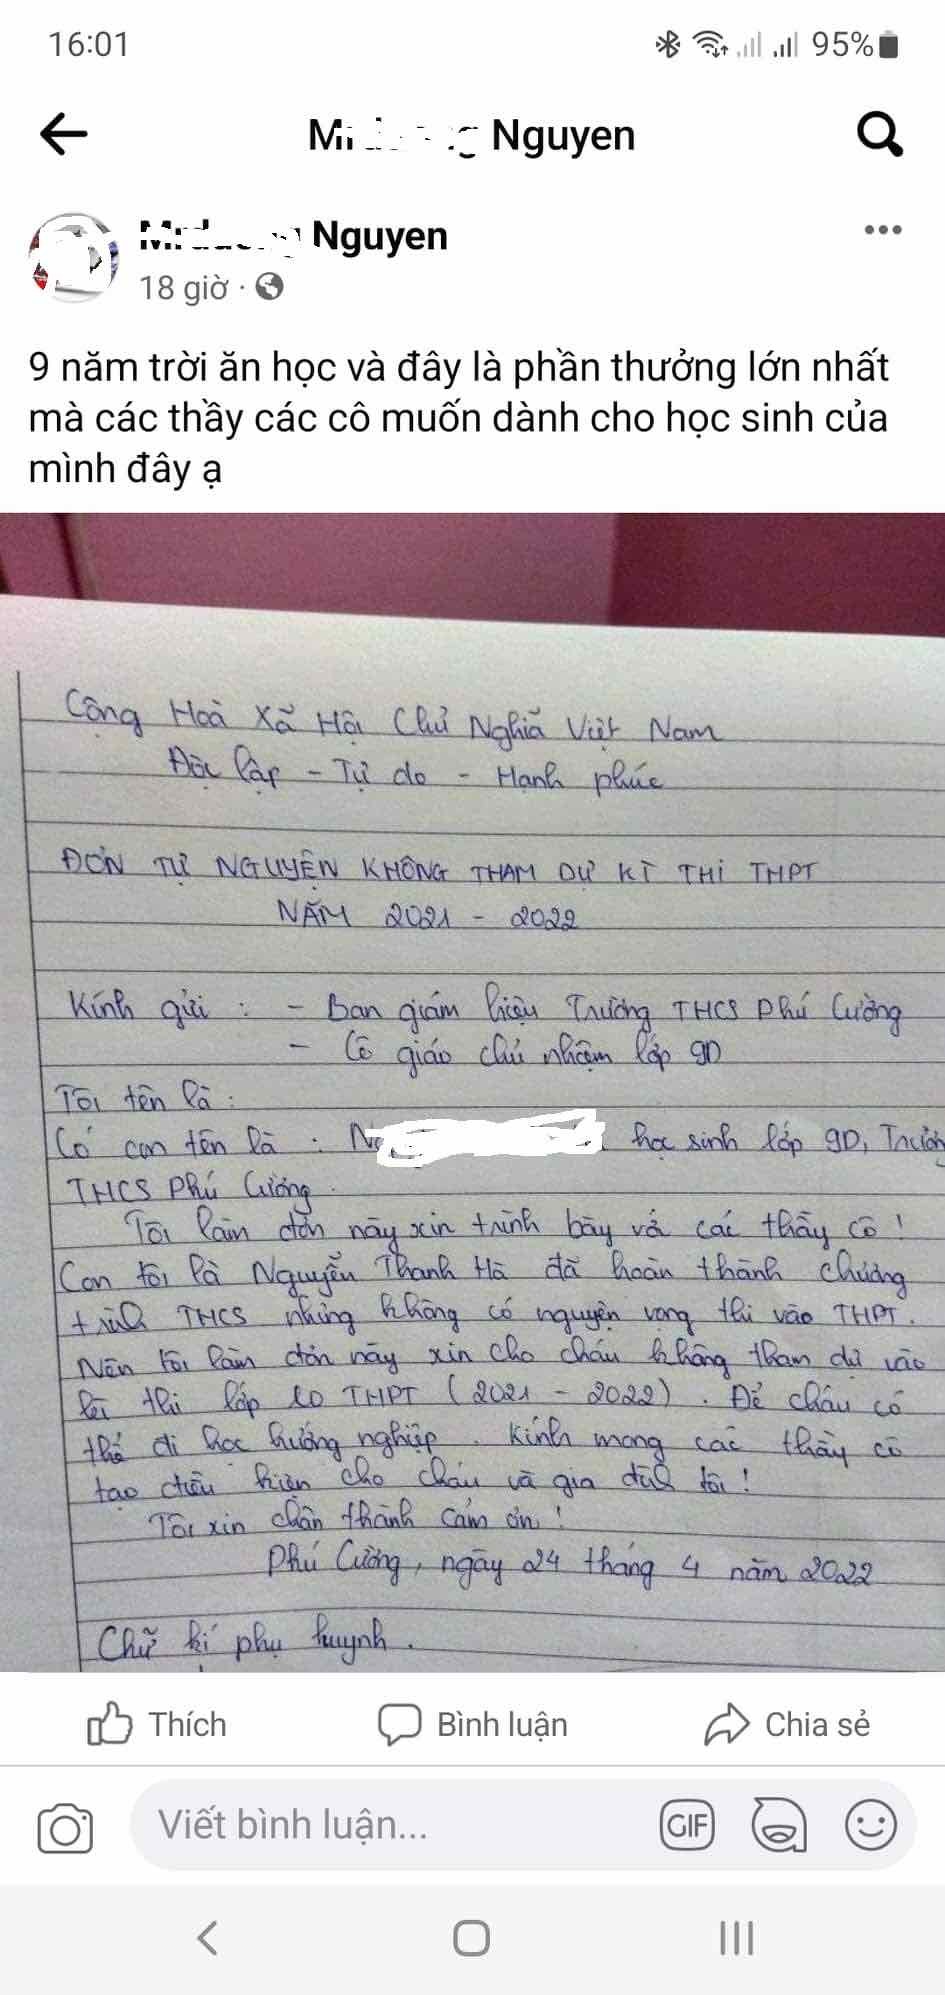 16:01
95%
Nguyen
Nguyen
18 giờ ·
9 năm trời ăn học và đây là phần thưởng lớn nhất
mà các thầy các cô muốn dành cho học sinh của
mình đây ạ
Cộng Hoà Xã Hội Chủ Nghĩa Việt Nam
Độc lập - Tự do - Hạnh phúc
ĐƠN TỰ NGUYỆN KHÔNG THAM DỰ KÌ THI THPT
NĂM 2021 - 2022
Kính gửi : - Ban giám hiệu Trường THCS Phú Cường
- Cô giáo chủ nhiệm lớp 9D
Tôi tên là :
Có con tên là : học sinh lớp 9D, Trường
THCS Phú Cường.
Tôi làm đơn này xin trình bày vả các thầy cô !
Con tôi là Nguyễn Thanh Hà đã hoàn thành chương
trình THCS nhưng không có nguyện vọng thi vào THPT.
Nên tôi làm đơn này xin cho cháu không tham dự vào
kì thi lớp 10 THPT (2021 - 2022). Để cháu có
thể đi học hướng nghiệp. Kính mong các thầy cô
tạo điều kiện cho cháu và gia đình tôi !
Tôi xin chân thành cảm ơn !
Phú Cường, ngày 24 tháng 4 năm 2022
Chữ kí phụ huynh.
Thích
Bình luận
Chia sẻ
Viết bình luận...
GIF